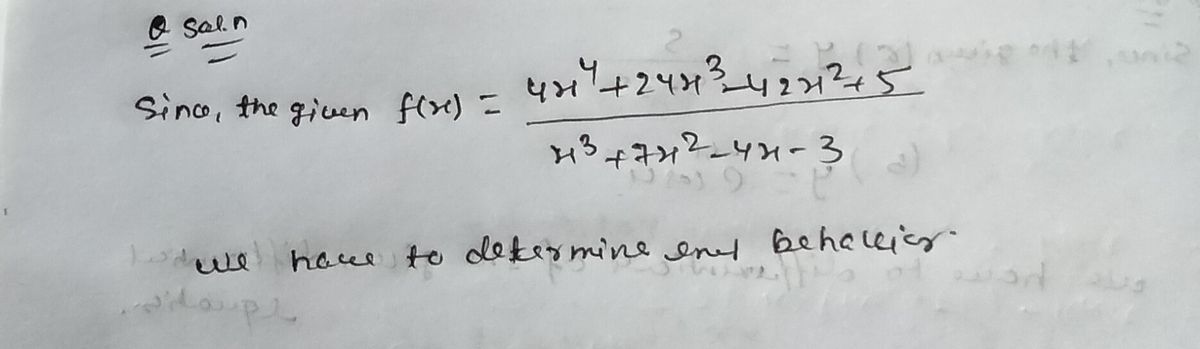 Q Sol.n
Since, the given f(x) = 4x⁴+24x³-42x²+5
x³+7x²-4x-3
we have to determine end behavior.